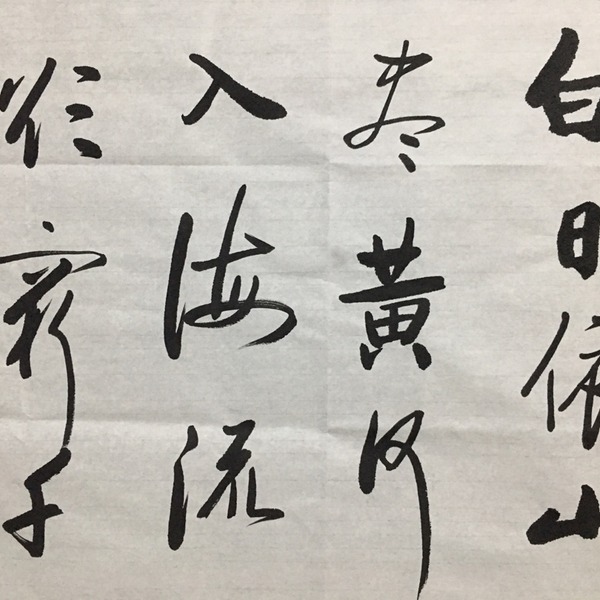 白日依山
盡黄河
入海流
欲窮千